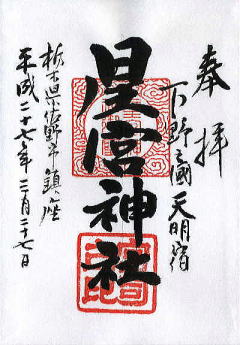 奉拝
下野國天明宿
星宮神社
栃木県佐野市鎮座
平成二十七年二月二十七日